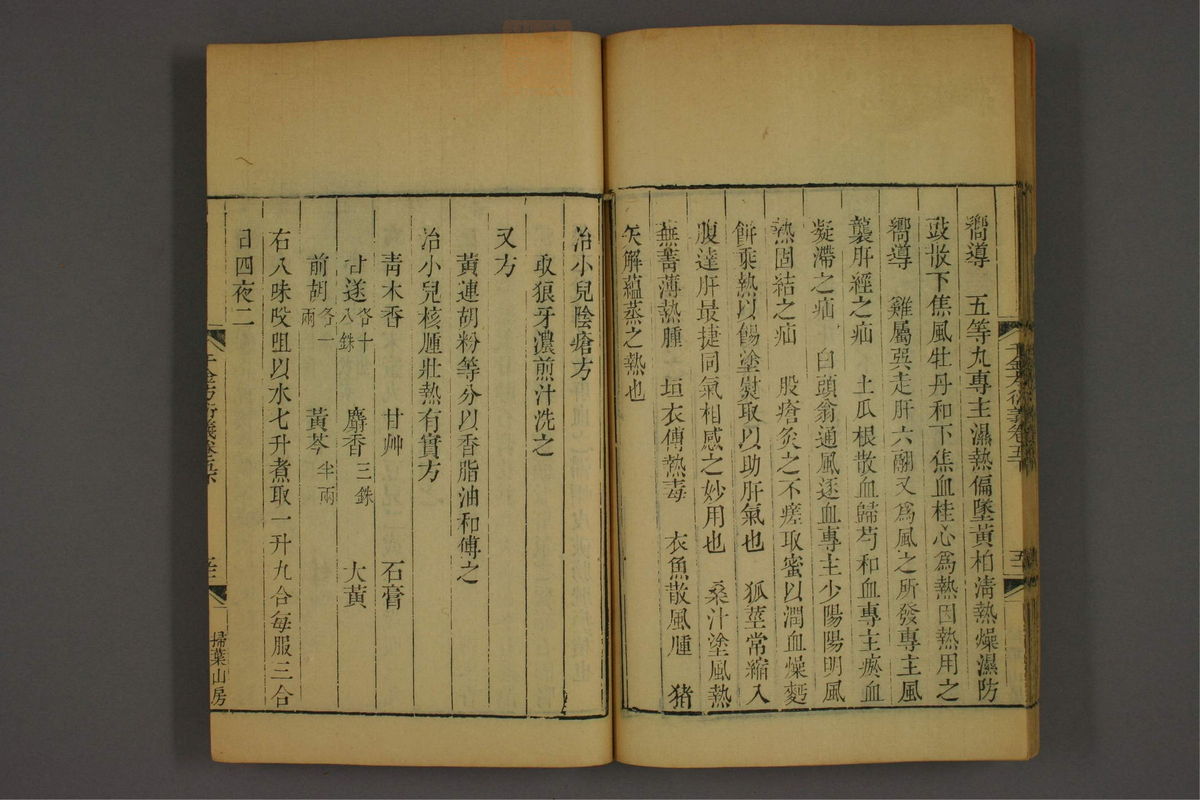 嚮導　五等丸專主濕熱偏墜黃柏淸熱燥濕防
豉散下焦風牡丹和下焦血桂心爲熱因熱用之
嚮導　雞屬巽走肝六翮又爲風之所發專主風
襲肝經之疝　土瓜根散血歸芍和血專主瘀血
凝滯之疝　白頭翁通風逐血專主少陽陽明風
熱固結之疝　股瘡灸之不瘥取蜜以潤血燥麪
餠乘熱以餳塗熨取以助肝氣也　狐莖常縮入
腹達肝最捷同氣相感之妙用也　桑汁塗風熱
蕪菁薄熱腫　垣衣傅熱毒　衣魚散風腫　猪
矢解蘊蒸之熱也
治小兒陰瘡方
取狼牙濃煎汁洗之
又方
黃連胡粉等分以香脂油和傅之
治小兒核腫壯熱有實方
靑木香　甘艸　石膏
甘遂各十八銖　麝香三銖　大黃
前胡各一兩　黃芩半兩
右八味㕮咀以水七升煮取一升九合每服三合
日四夜二
千金方衍義卷五下
千金方衍義卷五下
掃葉山房